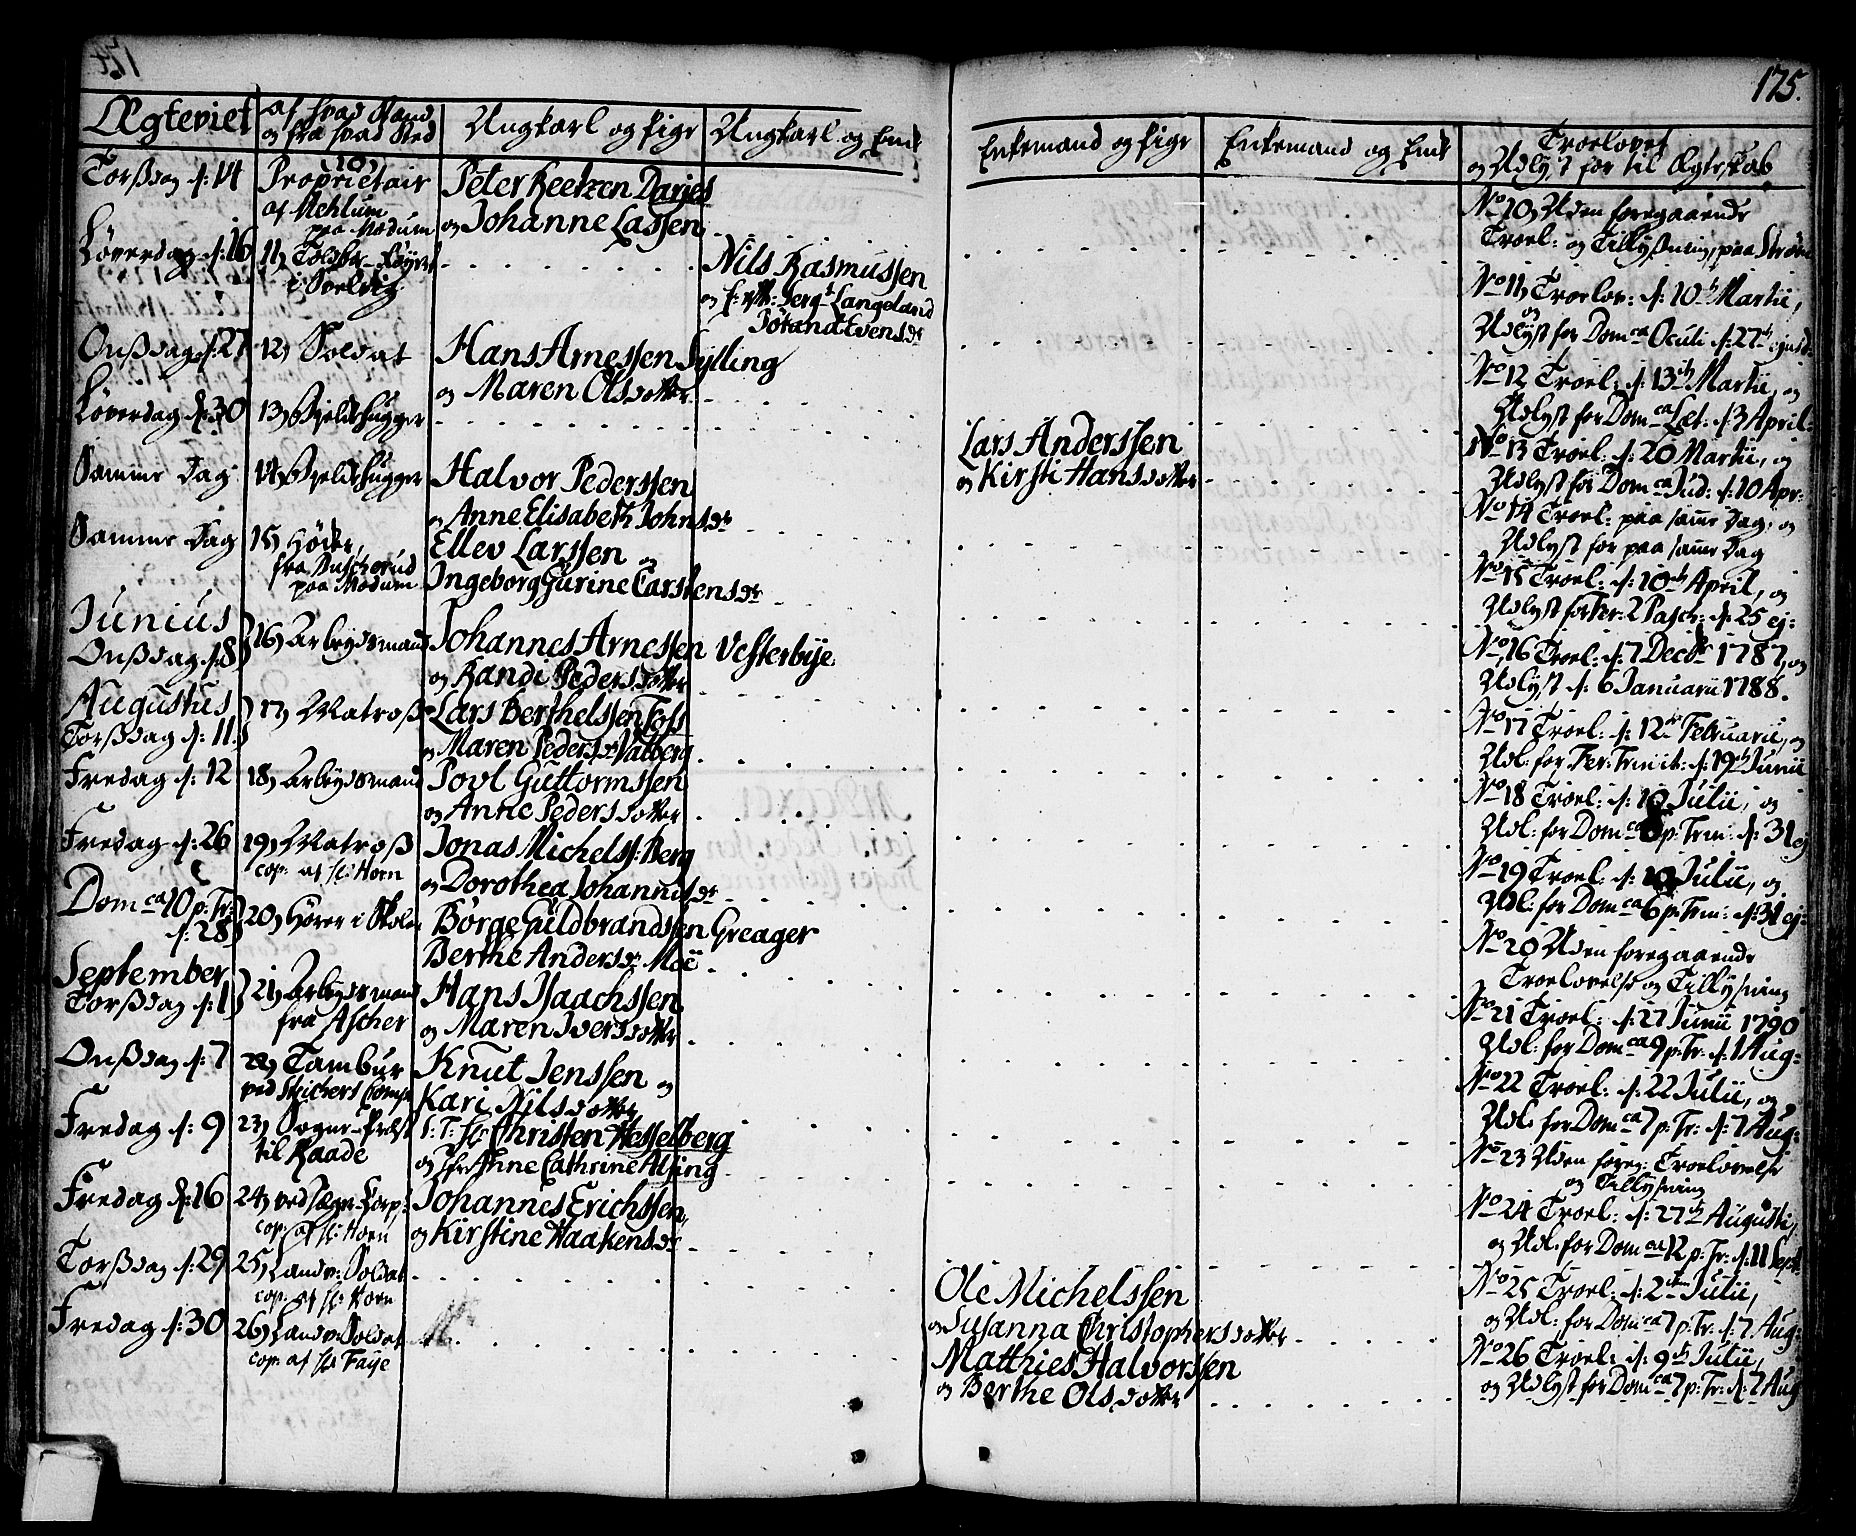 175.
Ægteviet
af hvad Stand
og fra hvad Sted
Ungkarl og Pige
Ungkarl og Enke
Enkemand og Pige
Enkemand og Enke
Troelovet
og Udlyst for til Ægteskab
Torsdag d: 14
10)
Proprietair
af
paa Modum
Peter Reetzen Darjes
og Johanne Lassen
No 10, Uden foregaaende
Troel: og Tillysning, paa
Løverdag d: 16
11)
i Svelvig
Nils Rasmussen
og Langeland
No 11, Troelov: d: 10 Martii,
og
Udlyst for Dom ca Oculi d: 27
Onsdag d: 27
12) Soldat
Hans Arnessen Sylling
og Maren Olsdotter
No 12 Troel: d: 13 Martii, og
Udlyst for Dom ca Læt: d: 3 April:
Løverdag d: 30
13) Bjelkehugger
Lars Anderssen
og Kirsti Hansdotter
No 13 Troel: d: 20 Martii, og
Udlyst for Dom ca Jud: d: 10 Apr:
Samme Dag
14) Bjelkehugger
Halvor Pederssen
og Anne Elisabeth Johnsdr
No 14 Troel: paa samme Dag, og
Udlyst for paa samme Dag
Samme Dag
15) Høker,
fra Buscherud
paa Modum
Ellev Larssen og
Ingeborg Gurine Carstensdr
No 15 Troel: d: 10 April, og
Udlyst for Fer: 2 Pasch: d: 25 ej:
Junius
Onsdag d: 8
16) Arbeydsmand
Johannes Arnessen Vesterbye
og Randi Pedersdotter
No 16 Troel: d: 7 Decbr 1787, og
Udlyst d: 6 Januarii 1788.
Augustus
Torsdag d: 11.
17) Matros
Lars Berthelssen Foss
og Maren Pedersdr Valberg
No 17 Troel: d: 12 Februarii, og
Udl: for Fer: Trinit: d: 19 Junii
Fredag d: 12
18) Arbeydsmand
Povl Guttormssen
og Anne Pedersdotter
No 18 Troel: d: 10 Julii, og
Udl: for Dom ca 6 p: Trin: d: 31 ej
Fredag d: 26
19) Matros
cop: af Hr: Horn
Jonas Michelss: Berg
og Dorothea Johannisdr
No 19 Troel: d: 10 Julii, og
Udl: for Dom ca 6 p: Trin: d: 31 ej:
Dom ca 10 p: Tr:
d: 28
20) Hører i Skolen
Børge Guldbrandssen Greager
Berthe Andersdr Moe
No 20 Uden foregaaende
Troelovelse og Tillysning
September
Torsdag d: 1
21) Arbeydsmand
fra Ascher
Hans Isaachssen
og Maren Iversdotter
No 21 Troel: d: 27 Junii 1790
Udl: for Dom ca 9 p: Tr: d: 1 Aug:
Onsdag d: 7
22) Tambur
ved Comp
Knut Jenssen og
Kari Nilsdotter
No 22 Troel: d: 22 Julii, og
Udl: for Dom ca 7 p: Tr: d: 7 Aug:
Fredag d: 9
23) Sogne-Præst
til Raade
S: T: Hr Christen Hesselberg
og Jfr: Anne Cathrine Alsing
No 23 Uden foreg: Troelovelse
og Tillysning
Fredag d: 16
24) ved Jæger-Corp:
cop: af Hr: Horn
Johannes Erichssen,
og Kirstine Haakensdr
No 24 Troel: d: 27 Augusti,
og Udl: for Dom ca 12 p: Tr: d: 11 Sept:
Torsdag d: 29
25) Landv: Soldat
cop: af Hr: Horn
Ole Michelssen
og Susanna Christophersdotter
No 25 Troel: d: 2 Julii,
og Udl: for Dom ca 7 p: Tr: d: 7 Aug:
Fredag d: 30
26) Landv: Soldat
cop: af Hr Faye
Matthies Halvorssen
og Berthe Olsdotter
No 26 Troel: d: 9 Julii,
og Udlyst for Dom ca 7 p: Tr: d: 7 Aug